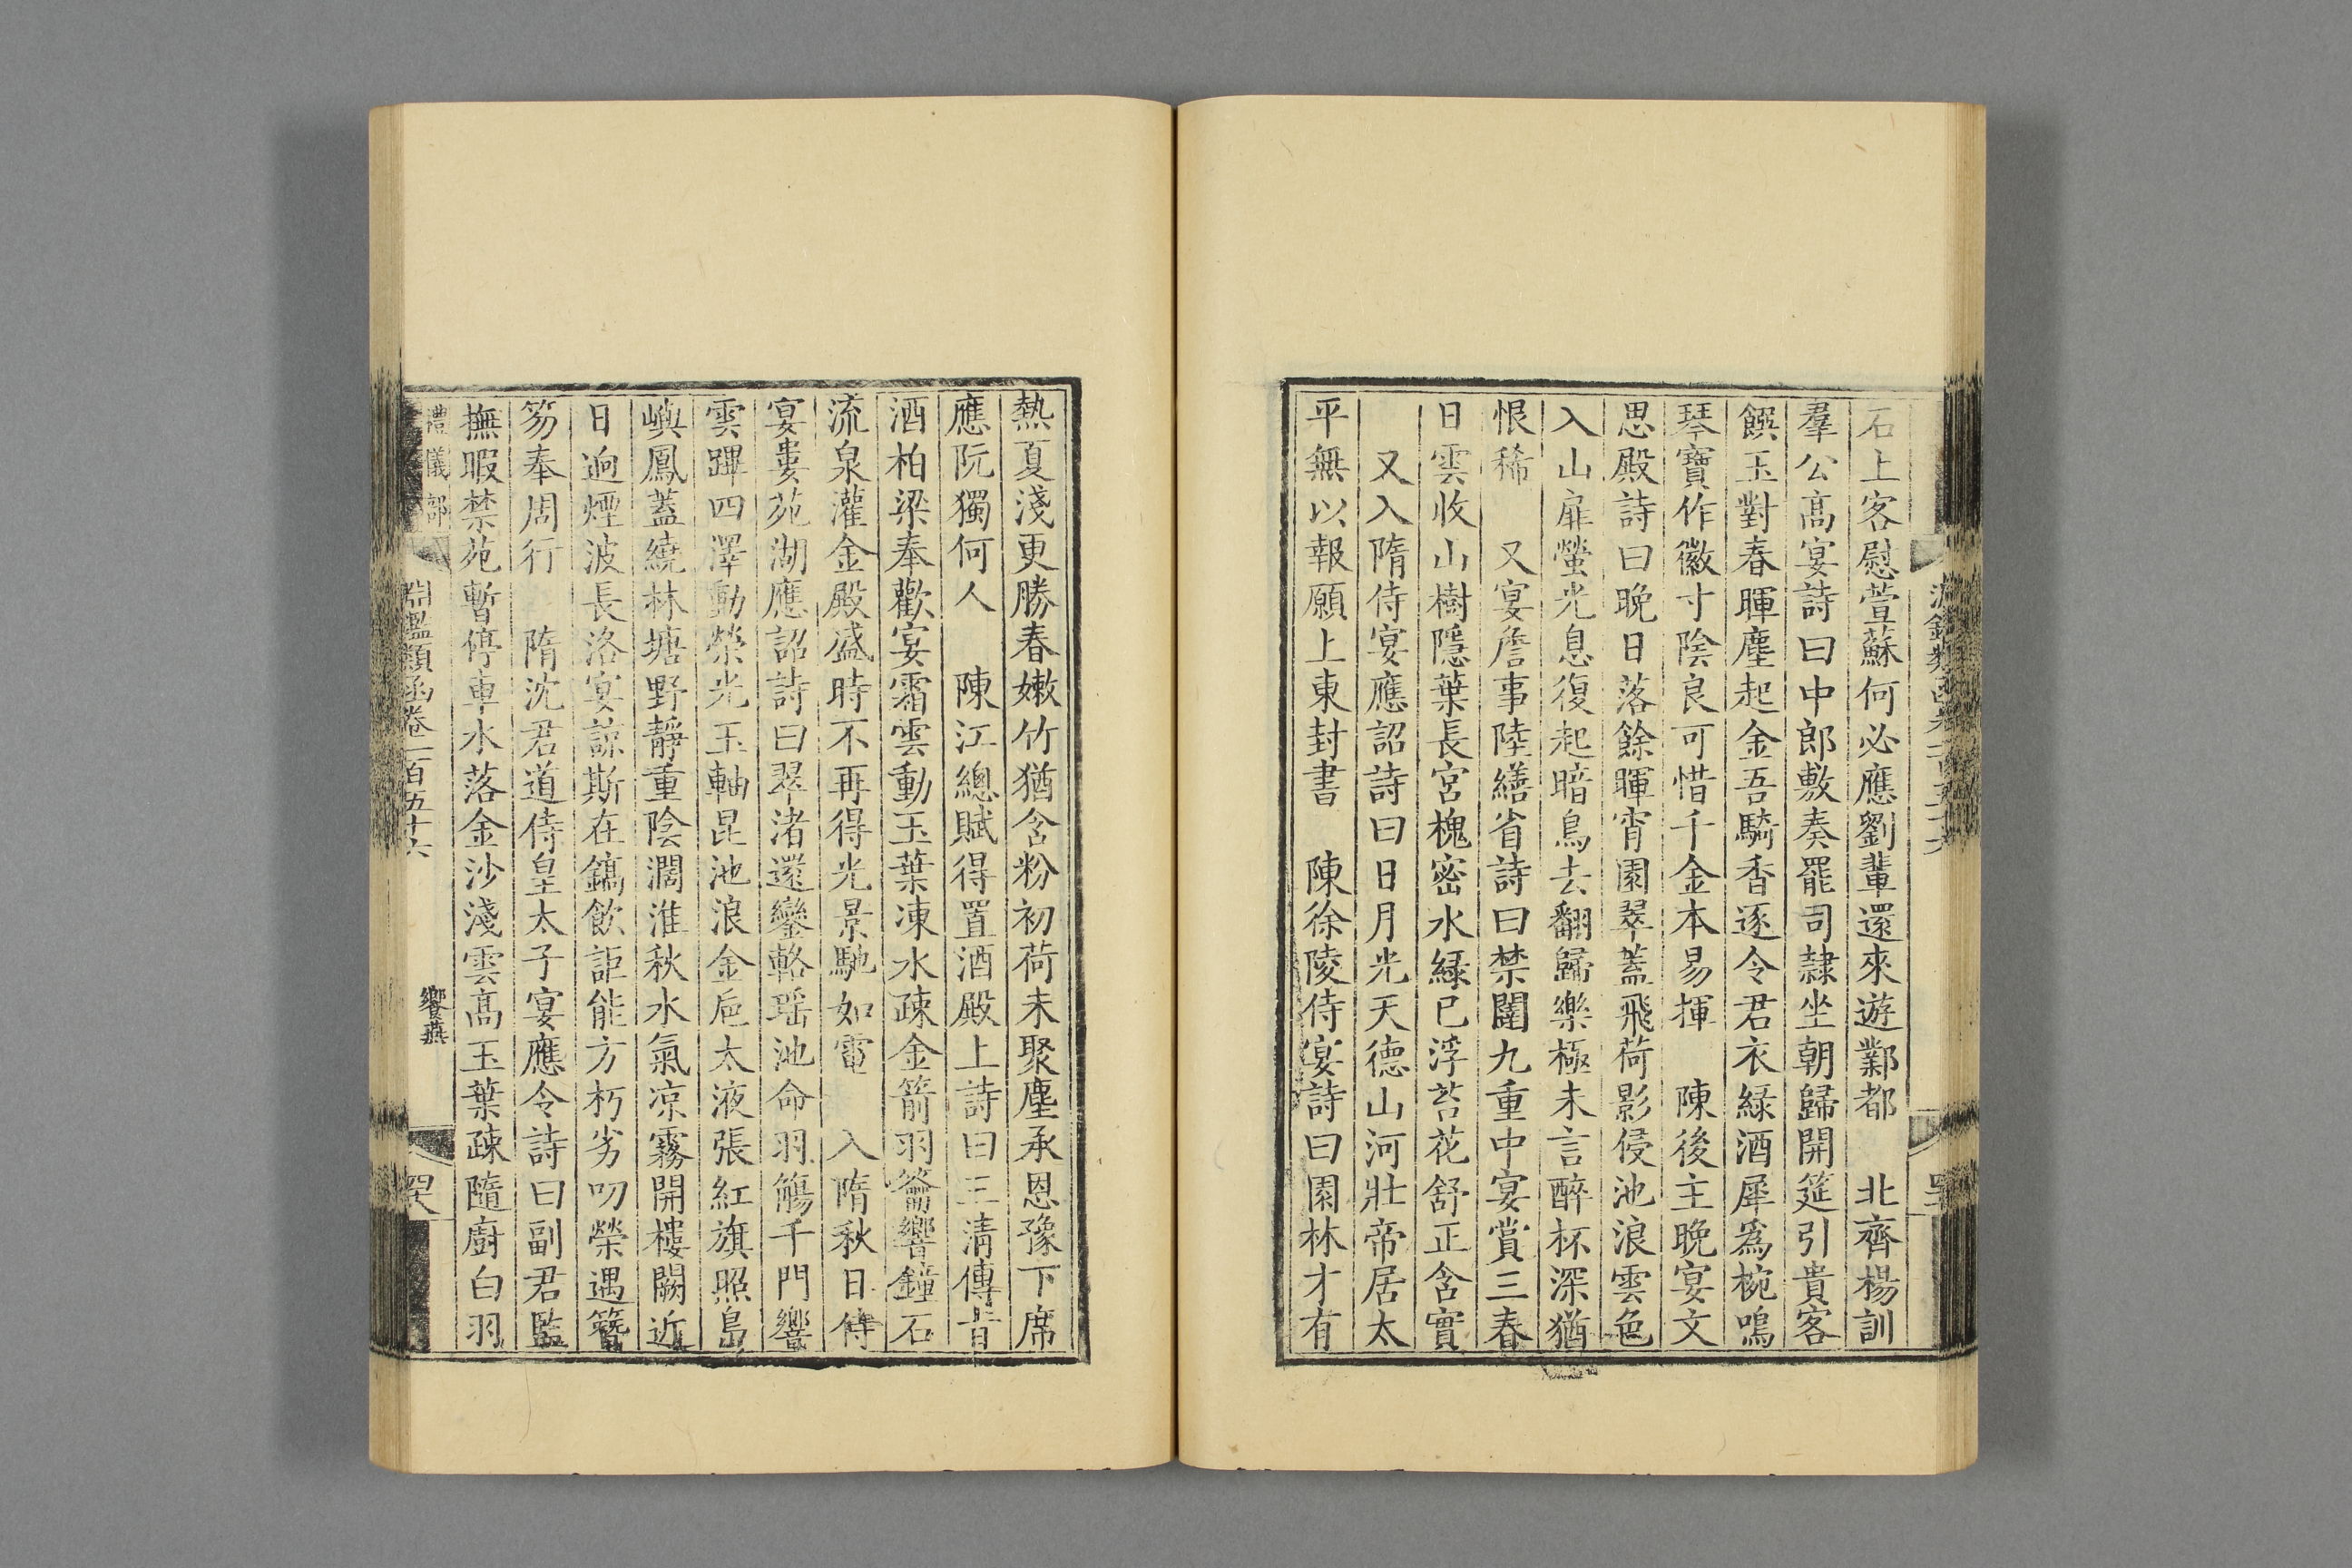 石上客慰萱蘇何必應劉輩還來遊鄴都　北齊楊訓
羣公高宴詩曰中郎敷奏罷司隷坐朝歸開筵引貴客
饌玉對春暉塵起金吾騎香逐令君衣緑酒犀爲椀鳴
琴寶作徽寸陰良可惜千金本易揮　陳後主晚宴文
思殿詩曰晚日落餘暉宵園翠蓋飛荷影侵池浪雲色
入山扉螢光息復起暗鳥去翻歸樂極未言醉杯深猶
恨稀　又宴詹事陸繕省詩曰禁闈九重中宴賞三春
日雲收山樹隱葉長宮槐密水緑已浮苔花舒正含實
又入隋侍宴應詔詩曰日月光天德山河壯帝居太
平無以報願上東封書　陳徐陵侍宴詩曰園林才有
熱夏淺更勝春嫩竹猶含粉初荷未聚塵承恩豫下席
應阮獨何人　陳江總賦得置酒殿上詩曰三清傳旨
酒柏梁奉歡宴霜雲動玉葉凍水疎金箭羽籥響鐘石
流泉灌金殿盛時不再得光景馳如電　入隋秋日侍
宴婁苑湖應詔詩曰翠渚還鑾輅瑶池命羽觴千門響
雲蹕四澤動榮光玉軸昆池浪金巵太液張紅旗照島
嶼鳳蓋繞林塘野靜重陰濶淮秋水氣凉霧開樓闕近
日迥煙波長洛宴諒斯在鎬飲詎能方朽劣叨榮遇簪
笏奉周行　隋沈君道侍皇太子宴應令詩曰副君監
撫暇禁苑暫停車水落金沙淺雲高玉葉疎隨廚白羽
禮儀部　淵鑑類函卷一百五十六　饗燕